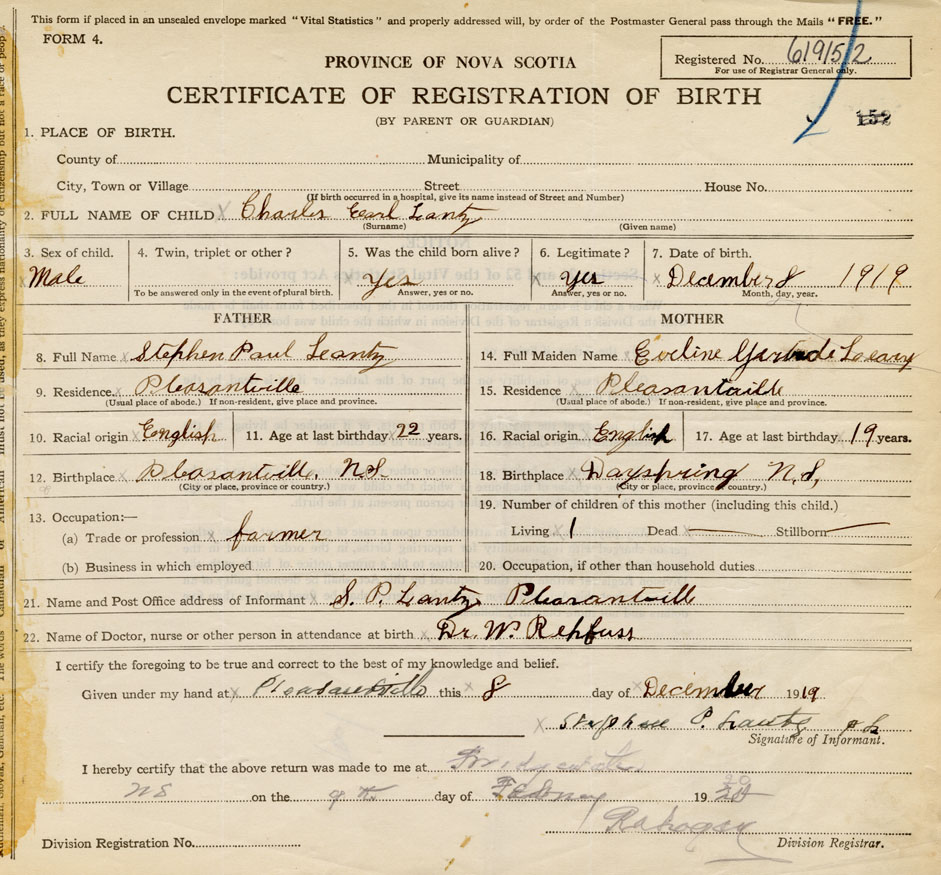 This form if placed in an unsealed envelope marked "Vital Statistics" and properly addressed will, by order of the Postmaster General pass through the Mails "FREE."
FORM 4.
Registered No. 619152
For use of Registrar General only.
PROVINCE OF NOVA SCOTIA
CERTIFICATE OF REGISTRATION OF BIRTH
(BY PARENT OR GUARDIAN)
152
1. PLACE OF BIRTH.
County of Municipality of
City, Town or Village Street House No.
(If birth occurred in a hospital, give its name instead of Street and Number)
2. FULL NAME OF CHILD x Charles Earl Lantz
(Surname) (Given name)
3. Sex of child. 4. Twin, triplet or other? 5. Was the child born alive? 6. Legitimate? 7. Date of birth.
x Male x Yes x Yes x December 8 1919
To be answered only in the event of plural birth. Answer, yes or no. Answer, yes or no. Month, day, year.
FATHER MOTHER
8. Full Name x Stephen Paul Lantz 14. Full Maiden Name x Eveline Gertrude Leary
9. Residence. x Pleasantville 15. Residence x Pleasantville
(Usual place of abode.) If non-resident, give place and province. (Usual place of abode.) If non-resident, give place and province.
10. Racial origin x English 11. Age at last birthday x 22 years. 16. Racial origin x English 17. Age at last birthday 19 years.
12. Birthplace x Pleasantville, NS 18. Birthplace x Dayspring N.S,
(City or place, province or country.) (City or place, province or country.)
13. Occupation:— 19. Number of children of this mother (including this child.)
(a) Trade or profession x farmer Living 1 Dead x Stillborn
(b) Business in which employed 20. Occupation, if other than household duties
21. Name and Post Office address of Informant x S. P. Lantz Pleasantville
22. Name of Doctor, nurse or other person in attendance at birth x Dr. W. Rehfuss
I certify the foregoing to be true and correct to the best of my knowledge and belief.
Given under my hand at x Pleasantville this x 8 day of December 1919
x Stephen P. Lantz
Signature of Informant.
I hereby certify that the above return was made to me at Bridgewater
NS on the 9th day of 19 20
Division Registration No. Division Registrar.